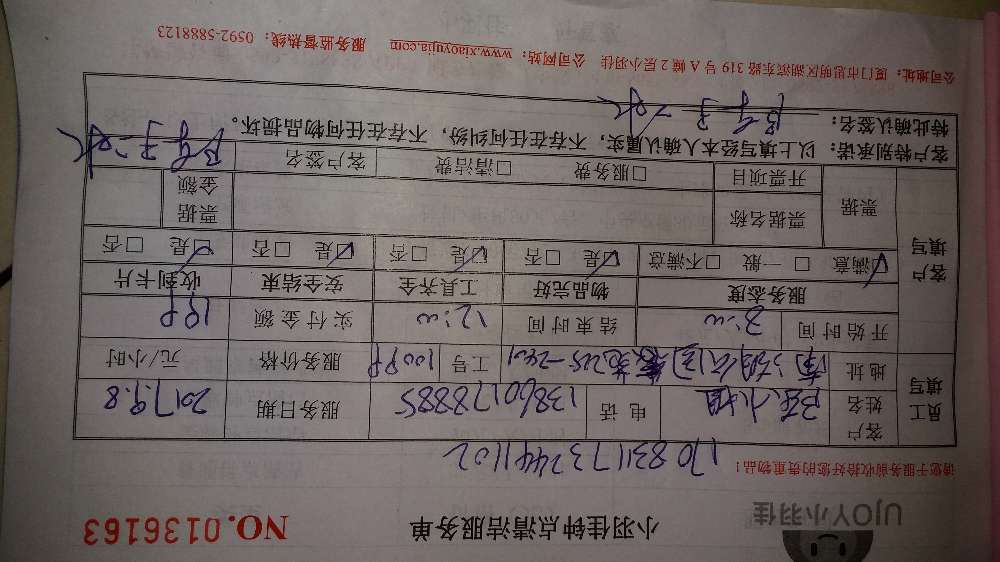 UJOY小羽佳
小羽佳钟点清洁服务单
NO.0136163
请您于服务前收拾好您的贵重物品！
17083117324441102
员工填写
客户姓名 小姐 电话 13860178885 服务日期 2017.9.8
地址 工号 服务价格 元/小时
开始时间 8:00 结束时间 12:00 实付金额
客户填写
服务态度 物品完好 工具齐全 安全结束 收到卡片
☑满意 □一般 □不满意 ☑是 □否 ☑是 □否 ☑是 □否 ☑是 □否
票据 票据名称 票据金额
开票项目 □服务费 □清洁费 客户签名
客户特别承诺：以上填写经本人确认属实，不存在任何纠纷，不存在任何物品损坏。
特此确认签名：
公司地址：厦门市思明区湖滨东路319号A幢2层小羽佳 公司网站：www.xiaoyujia.com 服务监督热线：0592-5888123